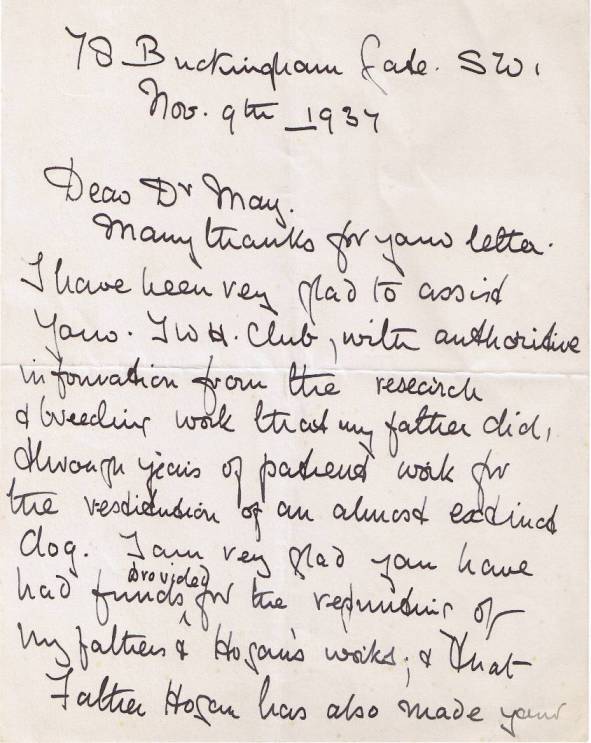 78 Buckingham Gate. SW1
Nov. 9th 1937
Dear Dr May.
Many thanks for your letter.
I have been very glad to assist
your I W H. Club, with authoritive
information from the research
& breeding work that my father did,
through years of patient work for
the restitution of an almost extinct
dog. I am very glad you have
had funds provided for the reprinting of
my fathers & Hogan's works; & that
Father Hogan has also made your